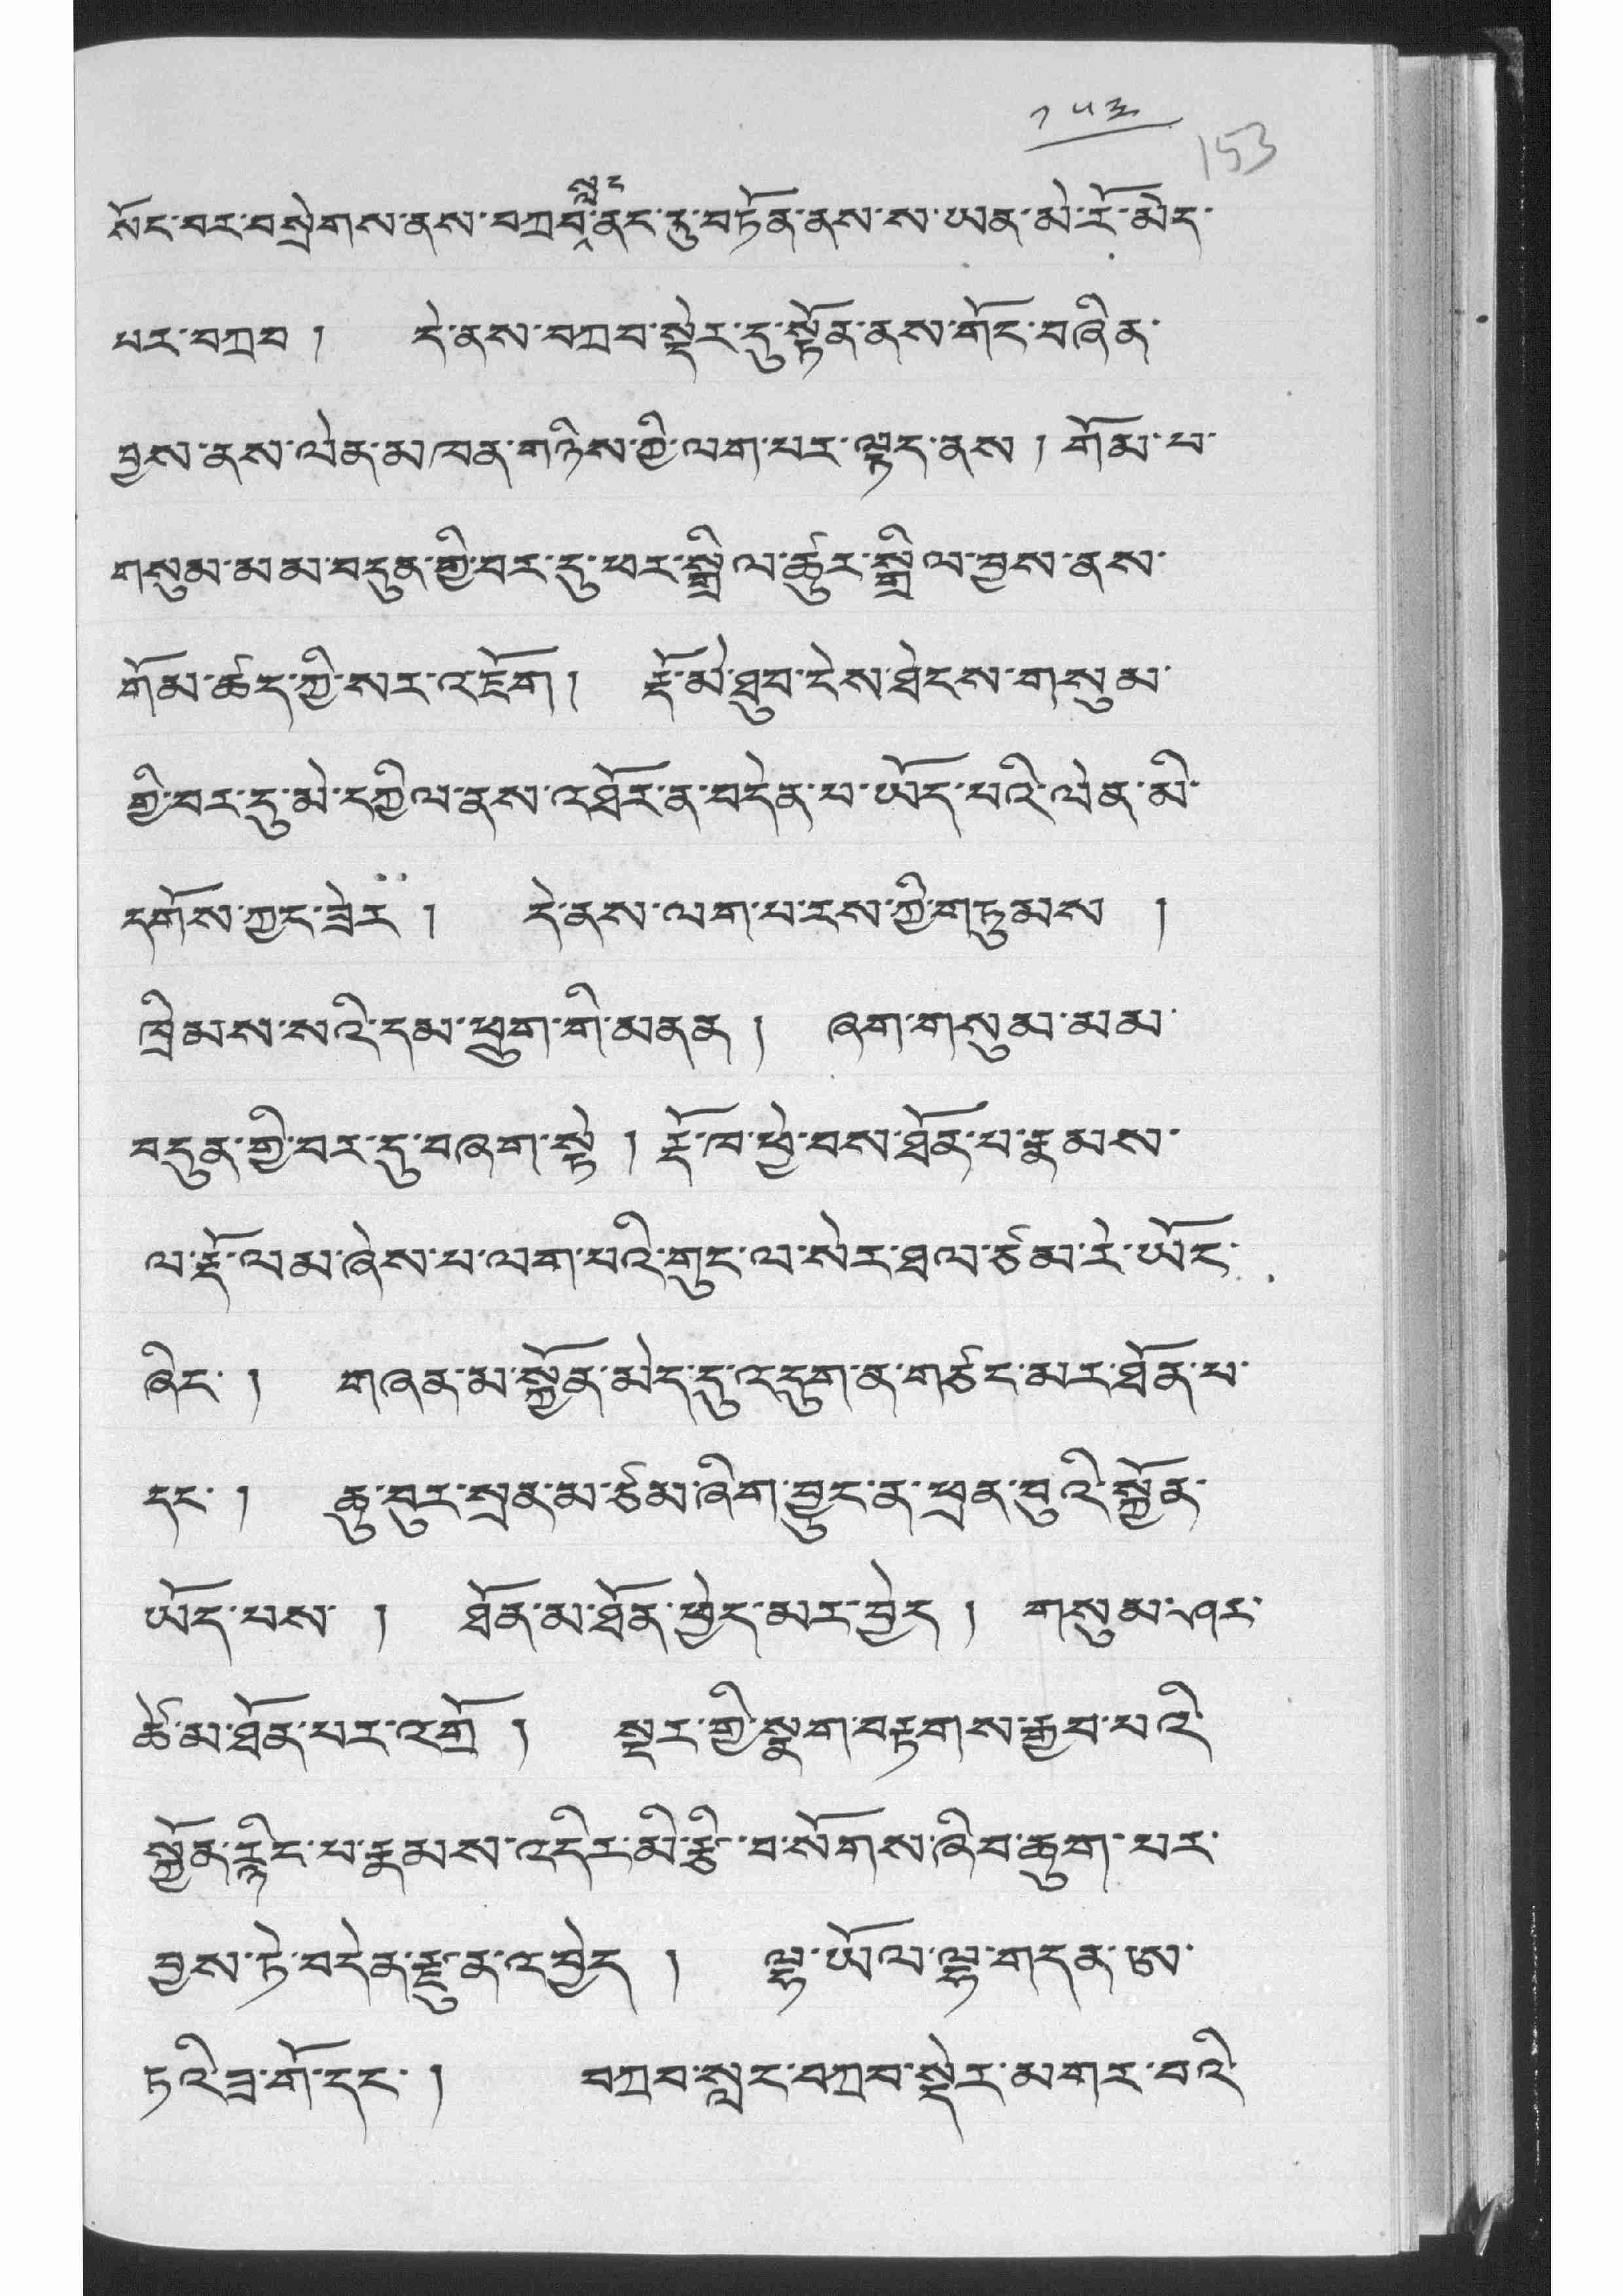 ༡༥༣
153
སོང་བར་བསྲེགས་ནས་བཀྲབ་སླང་ནང་དུ་བཏོན་ནས་ས་ཡན་མེ་རོ་མེད་
པར་བཀྲབ། དེ་ནས་བཀྲབ་སྡེར་དུ་སྟོན་ནས་གོང་བཞིན་
བྱས་ནས་ལེན་མཁན་གཉིས་ཀྱི་ལག་པར་ལྟད་ནས། གོམ་པ་
གསུམ་མམ་བདུན་གྱི་བར་དུ་ཕར་སྒྲིལ་ཚུར་སྒྲིལ་བྱས་ནས་
གོམ་ཚད་ཀྱི་སར་འཇོག། རྡོ་མེ་ཐུབ་ངེས་ཐེངས་གསུམ་
གྱི་བར་དུ་མེ་དཀྱིལ་ནས་འཐོར་ན་བདེན་པ་ཡོད་པའི་ལེན་མི་
དགོས་ཀྱང་ཟེར། དེ་ནས་ལག་པ་རས་ཀྱི་གཏུམས།
ཁྲིམས་སའི་དམ་ཕྲུག་གི་མནན། ཞག་གསུམ་མམ་
བདུན་གྱི་བར་དུ་བཞག་སྟེ། རྡོ་ཁ་ཕྱེ་བས་ཐོན་པ་རྣམས་
ལ་རྡོ་ལམ་ཞེས་པ་ལག་པའི་གུང་ལ་སེར་ཐལ་ཙམ་རེ་ཡོང་
ཞིང་། གཞན་མ་སྐྱོན་མེད་དུ་འདུག་ན་གཙང་མར་ཐོན་པ་
དང་། ཆུ་བུར་སྲན་མ་ཙམ་ཞིག་བྱུང་ན་ཕྲན་བུའི་སྐྱོན་
ཡོད་པས། ཐོན་མ་ཐོན་ཕྱེད་མར་བྱེད། གསུམ་ཤར་
ཚེ་མ་ཐོན་པར་འགྲོ། སྔར་གྱི་སྣག་བརྟགས་རྒྱབ་པའི
སྐྱོན་རྙིང་པ་རྣམས་འདིར་མི་རྩི་བ་སོགས་ཞིབ་ཆུག་པར་
བྱས་ཏེ་བདེན་རྫུན་འབྱེད། ལྷ་ཡོལ་ལྷ་གདན་ཨ་
ཏའི་ཟྭ་གོ་དང་། བཀྲབ་སླང་བཀྲབ་སྡེར་མགར་བའི